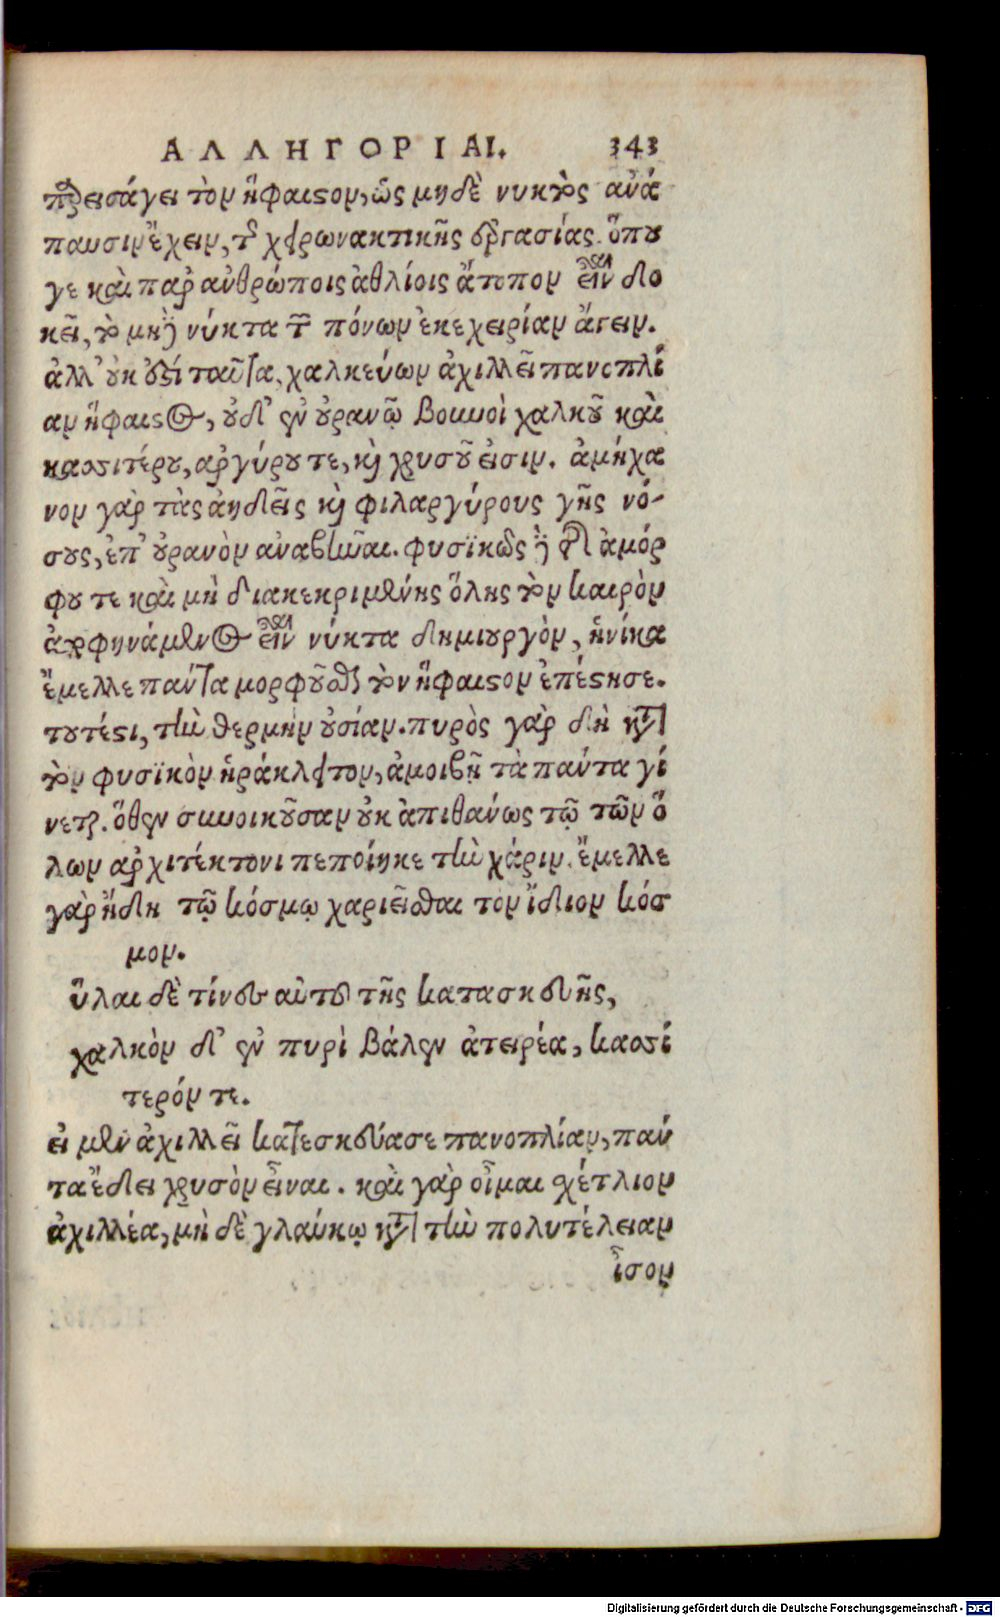 ΑΛΛΗΓΟΡΙΑΙ. 343
παρεισάγει τὸν ἥφαιστον, ὡς μηδὲ νυκτὸς ἀνά
παυσιν ἔχειν, τῆς χειρωνακτικῆς ἐργασίας. ὅπου
γε καὶ παρ' ἀνθρώποις ἀθλίοις ἄτοπον εἶναι δο
κεῖ, τὸ μὴ δὲ νύκτα τῶν πόνων ἐκεχειρίαν ἄγειν.
ἀλλ' οὐκ ἐστὶ ταῦτα, χαλκεύων ἀχιλλεῖ πανοπλί
αν ἥφαιστος, οὐδ' ἐν οὐρανῷ βουνοὶ χαλκοῦ καὶ
κασσιτέρου, ἀργύρου τε, καὶ χρυσοῦ εἰσιν. ἀμήχα
νον γὰρ τὰς ἀηδεῖς καὶ φιλαργύρους γῆς νό-
σους, ἐπ' οὐρανὸν ἀναβῆναι. φυσϊκῶς δὲ τῆς ἀμόρ
φου τε καὶ μὴ διακεκριμένης ὕλης τὸν καιρὸν
ἀποφηνάμενος εἶναι νύκτα δημιουργὸν, ἡνίκα
ἔμελλε πάντα μορφοῦσθαι τὸν ἥφαιστον ἐπέστησε.
τουτέστι, τὴν θερμὴν οὐσίαν. πυρὸς γὰρ δὴ κατὰ
τὸν φυσϊκὸν ἡράκλειτον, ἀμοιβῇ τὰ πάντα γί
νεται. ὅθεν συνοικοῦσαν οὐκ ἀπιθάνως τῷ τῶν ὅ
λων ἀρχιτέκτονι πεποίηκε τὴν χάριν. ἔμελλε
γὰρ ἤδη τῷ κόσμῳ χαριεῖσθαι τὸν ἴδιον κόσ
μον.
ὗλαι δὲ τίνες αὐτοῦ τῆς κατασκευῆς,
χαλκὸν δ' ἐν πυρὶ βάλεν ἀτειρέα, κασσί
τερόν τε.
εἰ μὲν ἀχιλλεῖ κατεσκεύασε πανοπλίαν, πάν
τα ἔδει χρυσὸν εἶναι. καὶ γὰρ οἶμαι σχέτλιον
ἀχιλλέα, μὴ δὲ γλαύκῳ κατὰ τὴν πολυτέλειαν
ἶσον
Digitalisierung gefördert durch die Deutsche Forschungsgemeinschaft - DFG